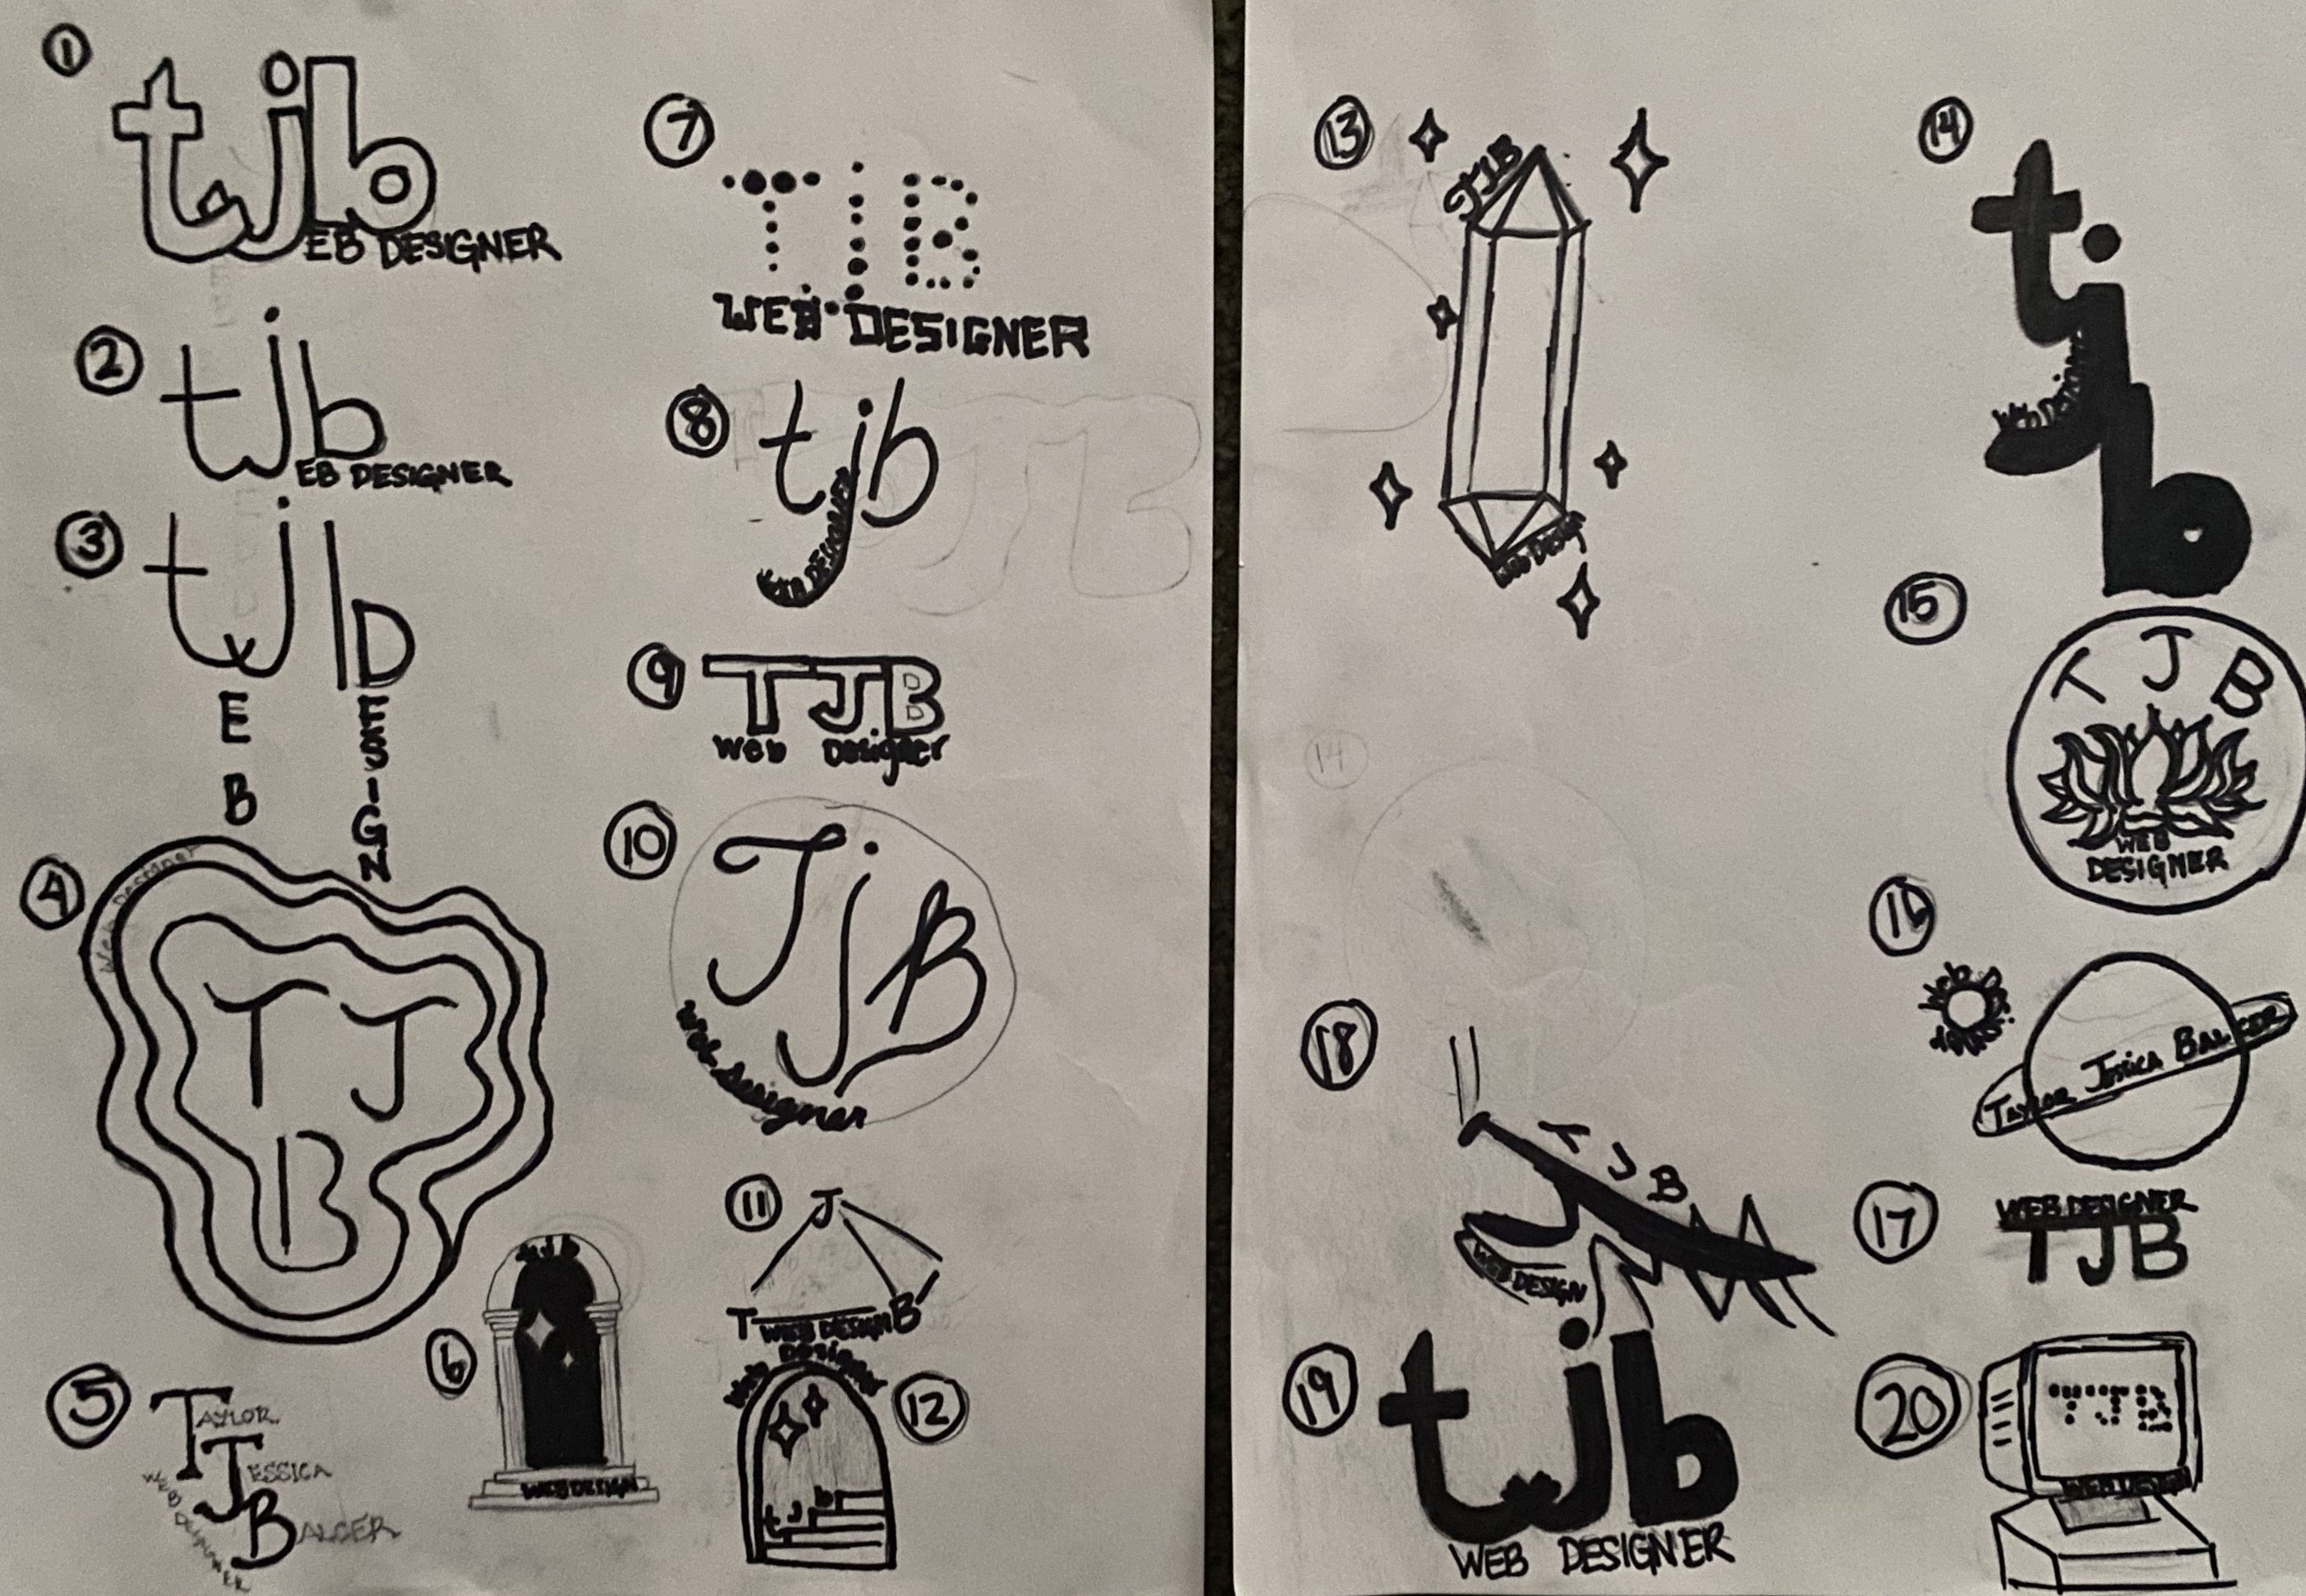 1
tjb
EB DESIGNER
2
tjb
EB DESIGNER
3
tjb
E
B
E
S
I
G
N
4
Web Designer
T J
B
5
TAYLOR
JESSICA
BALCER
WEB DESIGNER
6
tjb
WEB DESIGN
7
TJB
WEB DESIGNER
8
tjb
WEB DESIGNER
9
TJB
Web Designer
10
TJB
Web Designer
11
J
T WEB DESIGN B
12
Web Designer
tjb
13
TJB
Web Design
14
tjb
Web Designer
14
15
T J B
WEB
DESIGNER
16
Web
TAYLOR JESSICA BALCER
17
WEB DESIGNER
TJB
18
T J B
WEB DESIGN
19
tjb
WEB DESIGNER
20
TJB
WEB DESIGN